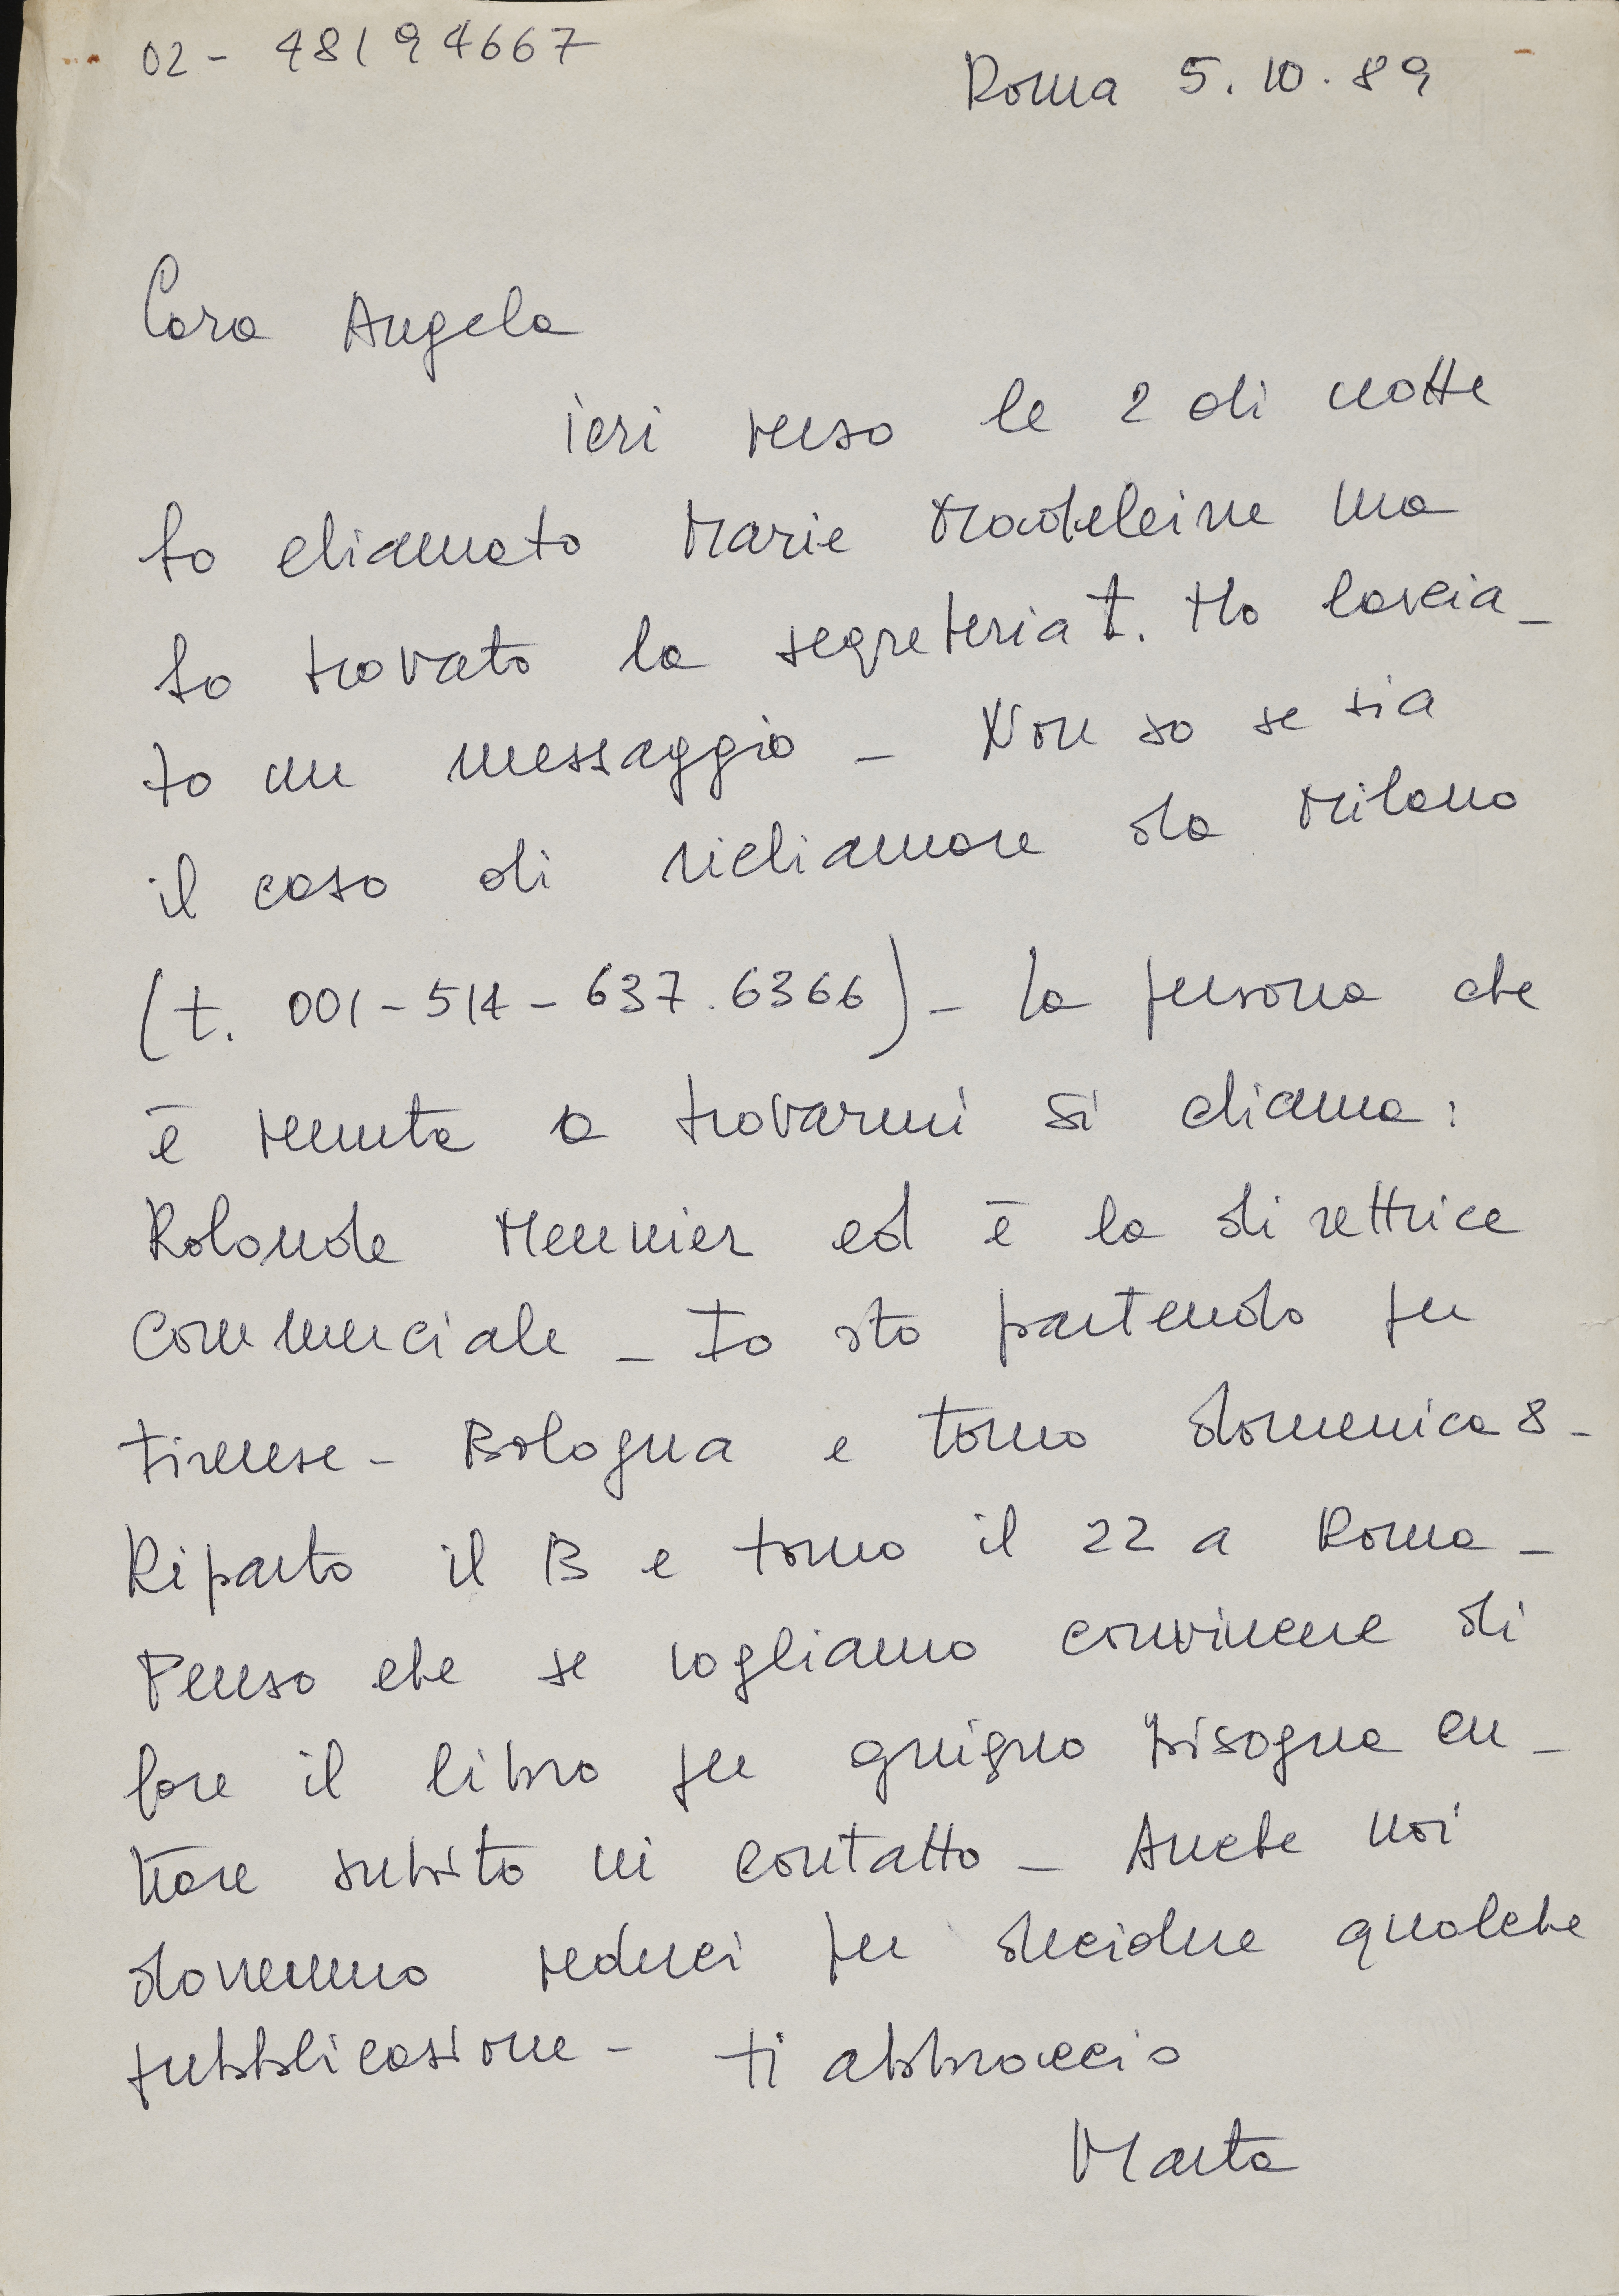 02 - 48194667
Roma 5.10.89
Cara Angela
ieri verso le 2 di notte
ho chiamato Marie Madeleine ma
ho trovato la segreteria t. Ho lascia_
to un messaggio _ Non so se sia
il caso di richiamare da Milano
(t. 001-514-637.6366) _ La persona che
è venuta a trovarmi si chiama:
Rolande Meunier ed è la direttrice
commerciale _ Io sto partendo per
Firenze - Bologna e torno domenica 8 -
Riparto il 13 e torno il 22 a Roma _
Penso che se vogliamo convincere di
fare il libro per giugno bisogna en_
trare subito in contatto _ Anche noi
dovremmo vederci per decidere qualche
pubblicazione - ti abbraccio
Marta